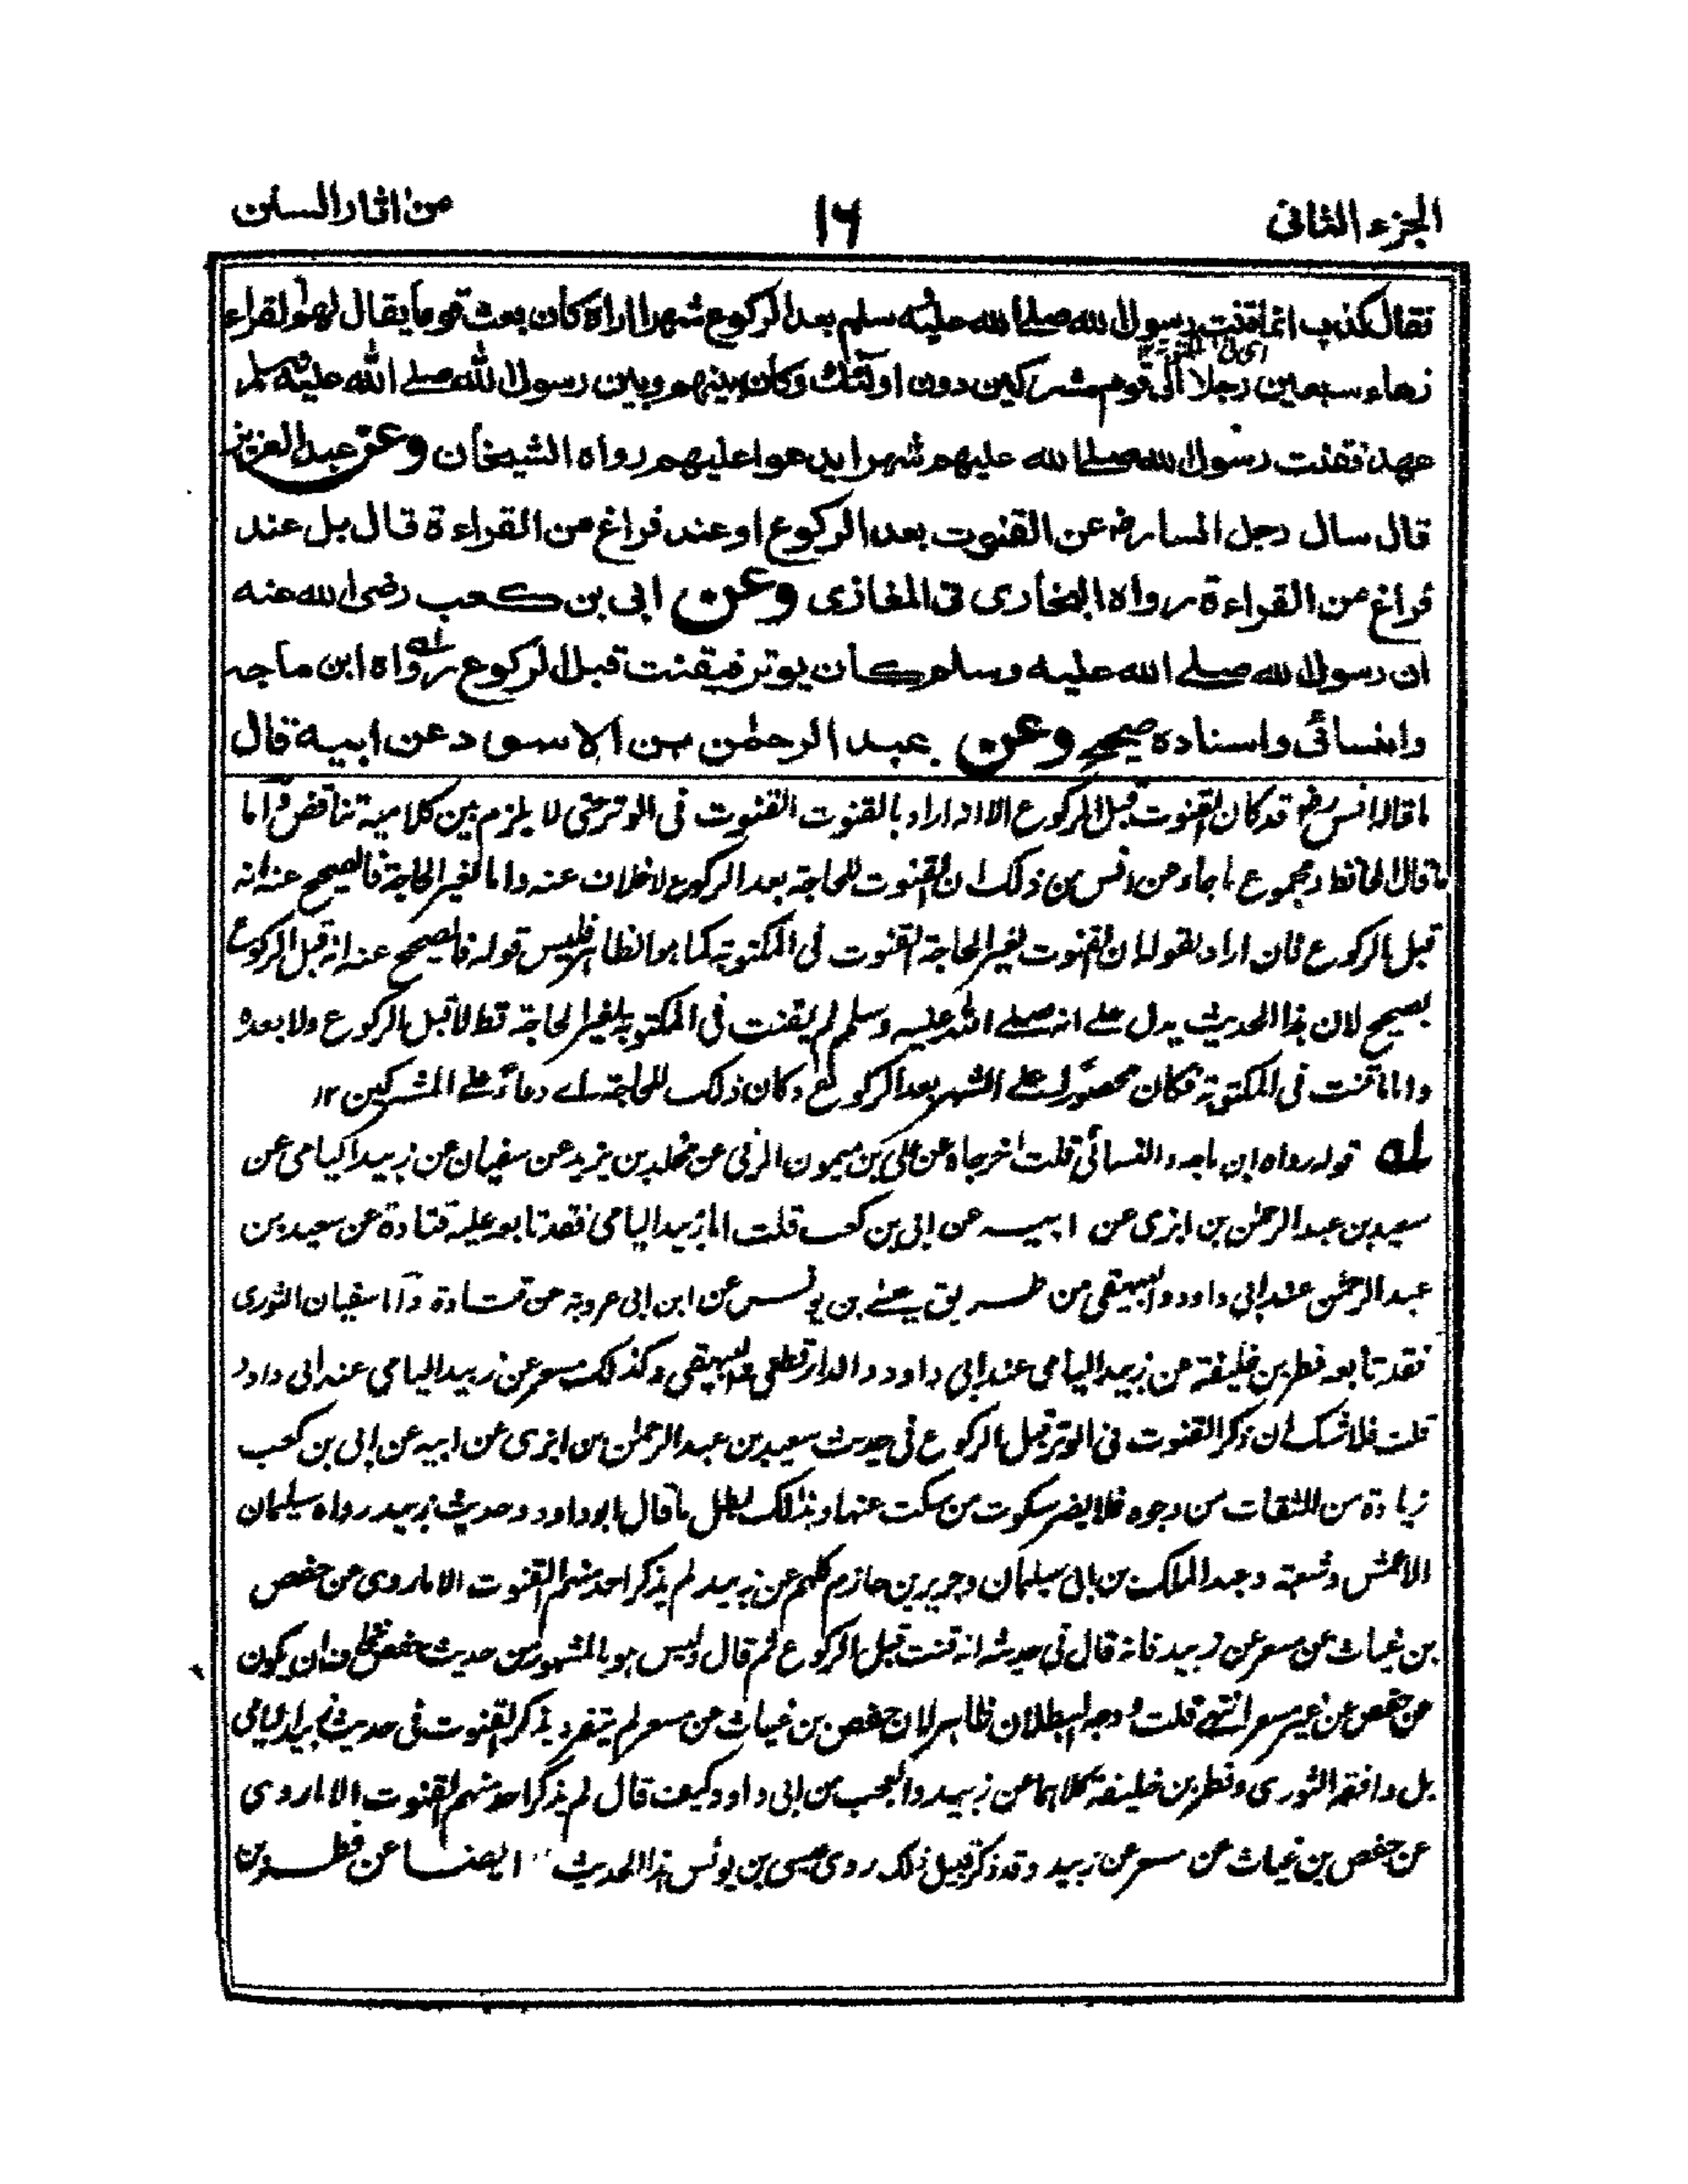 الجزء الثانی
۱۶
من اثار السنن
فقال کذب انما قنت رسول الله صلے الله علیه سلم بعد الرکوع شهرا اراه کان بعث قوما یقال لهم القراء
زهاء سبعین رجلا الی قوم مشرکین دون اولئک وکان بینهم وبین رسول الله صلے الله علیه سلم
عهد فقنت رسول الله صلے الله علیهم شهرا یدعوا علیهم رواه الشیخان وعن عبد العزیز
قال سال رجل انسا رض عن القنوت بعد الرکوع او عند فراغ من القراءة قال بل عند
فراغ من القراءة رواه البخاری فی المغازی وعن ابی بن کعب رضی الله عنه
ان رسول الله صلے الله علیه وسلم کان یوتر فیقنت قبل الرکوع رواه ابن ماجه
والنسائی واسناده صحیح وعن عبد الرحمٰن بن الاسود عن ابیه قال
ما قاله انس رض قد کان القنوت قبل الرکوع الا انه اراد بالقنوت القنوت فی الوتر حتی لا یلزم بین کلامیه تناقض واما
ما قال الحافظ ومجموع ما جاء عن انس من ذلک ان القنوت للحاجة بعد الرکوع لا خلاف عنه واما لغیر الحاجة فالصحیح عنه انه
قبل الرکوع فان اراد بقوله ان القنوت لغیر الحاجة القنوت فی المکتوبة کما هو الظاهر فلیس قوله فالصحیح عنه انه قبل الرکوع
بصحیح لان هذا الحدیث یدل علے انه صلے الله علیه وسلم لم یقنت فی المکتوبة لغیر الحاجة قط لا قبل الرکوع ولا بعده
واما ما قنت فی المکتوبة فکان محصورا علے الشهر بعد الرکوع وکان ذلک للحاجة اے دعاءً علے المشرکین ۱۲
له قوله رواه ابن ماجه والنسائی قلت اخرجاه عن علی بن میمون الرقی عن مخلد بن یزید عن سفیان عن زبید الیامی عن
سعید بن عبد الرحمٰن بن ابزی عن ابیه عن ابی بن کعب قلت اما زبید الیامی فقد تابعه علیه قتادة عن سعید بن
عبد الرحمٰن عند ابی داود والبیهقی من طریق عیسے بن یونس عن ابن ابی عروبة عن قتادة واما سفیان الثوری
فقد تابعه فطر بن خلیفة عن زبید الیامی عند ابی داود والدارقطنی والبیهقی وکذلک مسعر عن زبید الیامی عند ابی داود
قلت فلا شک ان ذکر القنوت فی الوتر قبل الرکوع فی حدیث سعید بن عبد الرحمٰن بن ابزی عن ابیه عن ابی بن کعب
زیادة من الثقات من وجوه فلا یضر سکوت من سکت عنها وبذلک بطل ما قال ابو داود وحدیث زبید رواه سلیمان
الاعمش وشعبة وعبد الملک بن ابی سلیمان وجریر بن حازم کلهم عن زبید لم یذکر احد منهم القنوت الا ما روی عن حفص
بن غیاث عن مسعر عن زبید فانه قال فی حدیثه انه قنت قبل الرکوع ثم قال ولیس هو بالمشهور من حدیث حفص نخاف ان یکون
عن حفص عن غیر مسعر انتهی قلت وجه البطلان ظاهر لان حفص بن غیاث عن مسعر لم یتفرد بذکر القنوت فی حدیث زبید الیامی
بل وافقه الثوری وفطر بن خلیفة کلاهما عن زبید والعجب من ابی داود کیف قال لم یذکر احد منهم القنوت الا ما روی
عن حفص بن غیاث عن مسعر عن زبید وقد ذکر قبیل ذلک روی عیسی بن یونس هذا الحدیث ایضا عن فطر بن